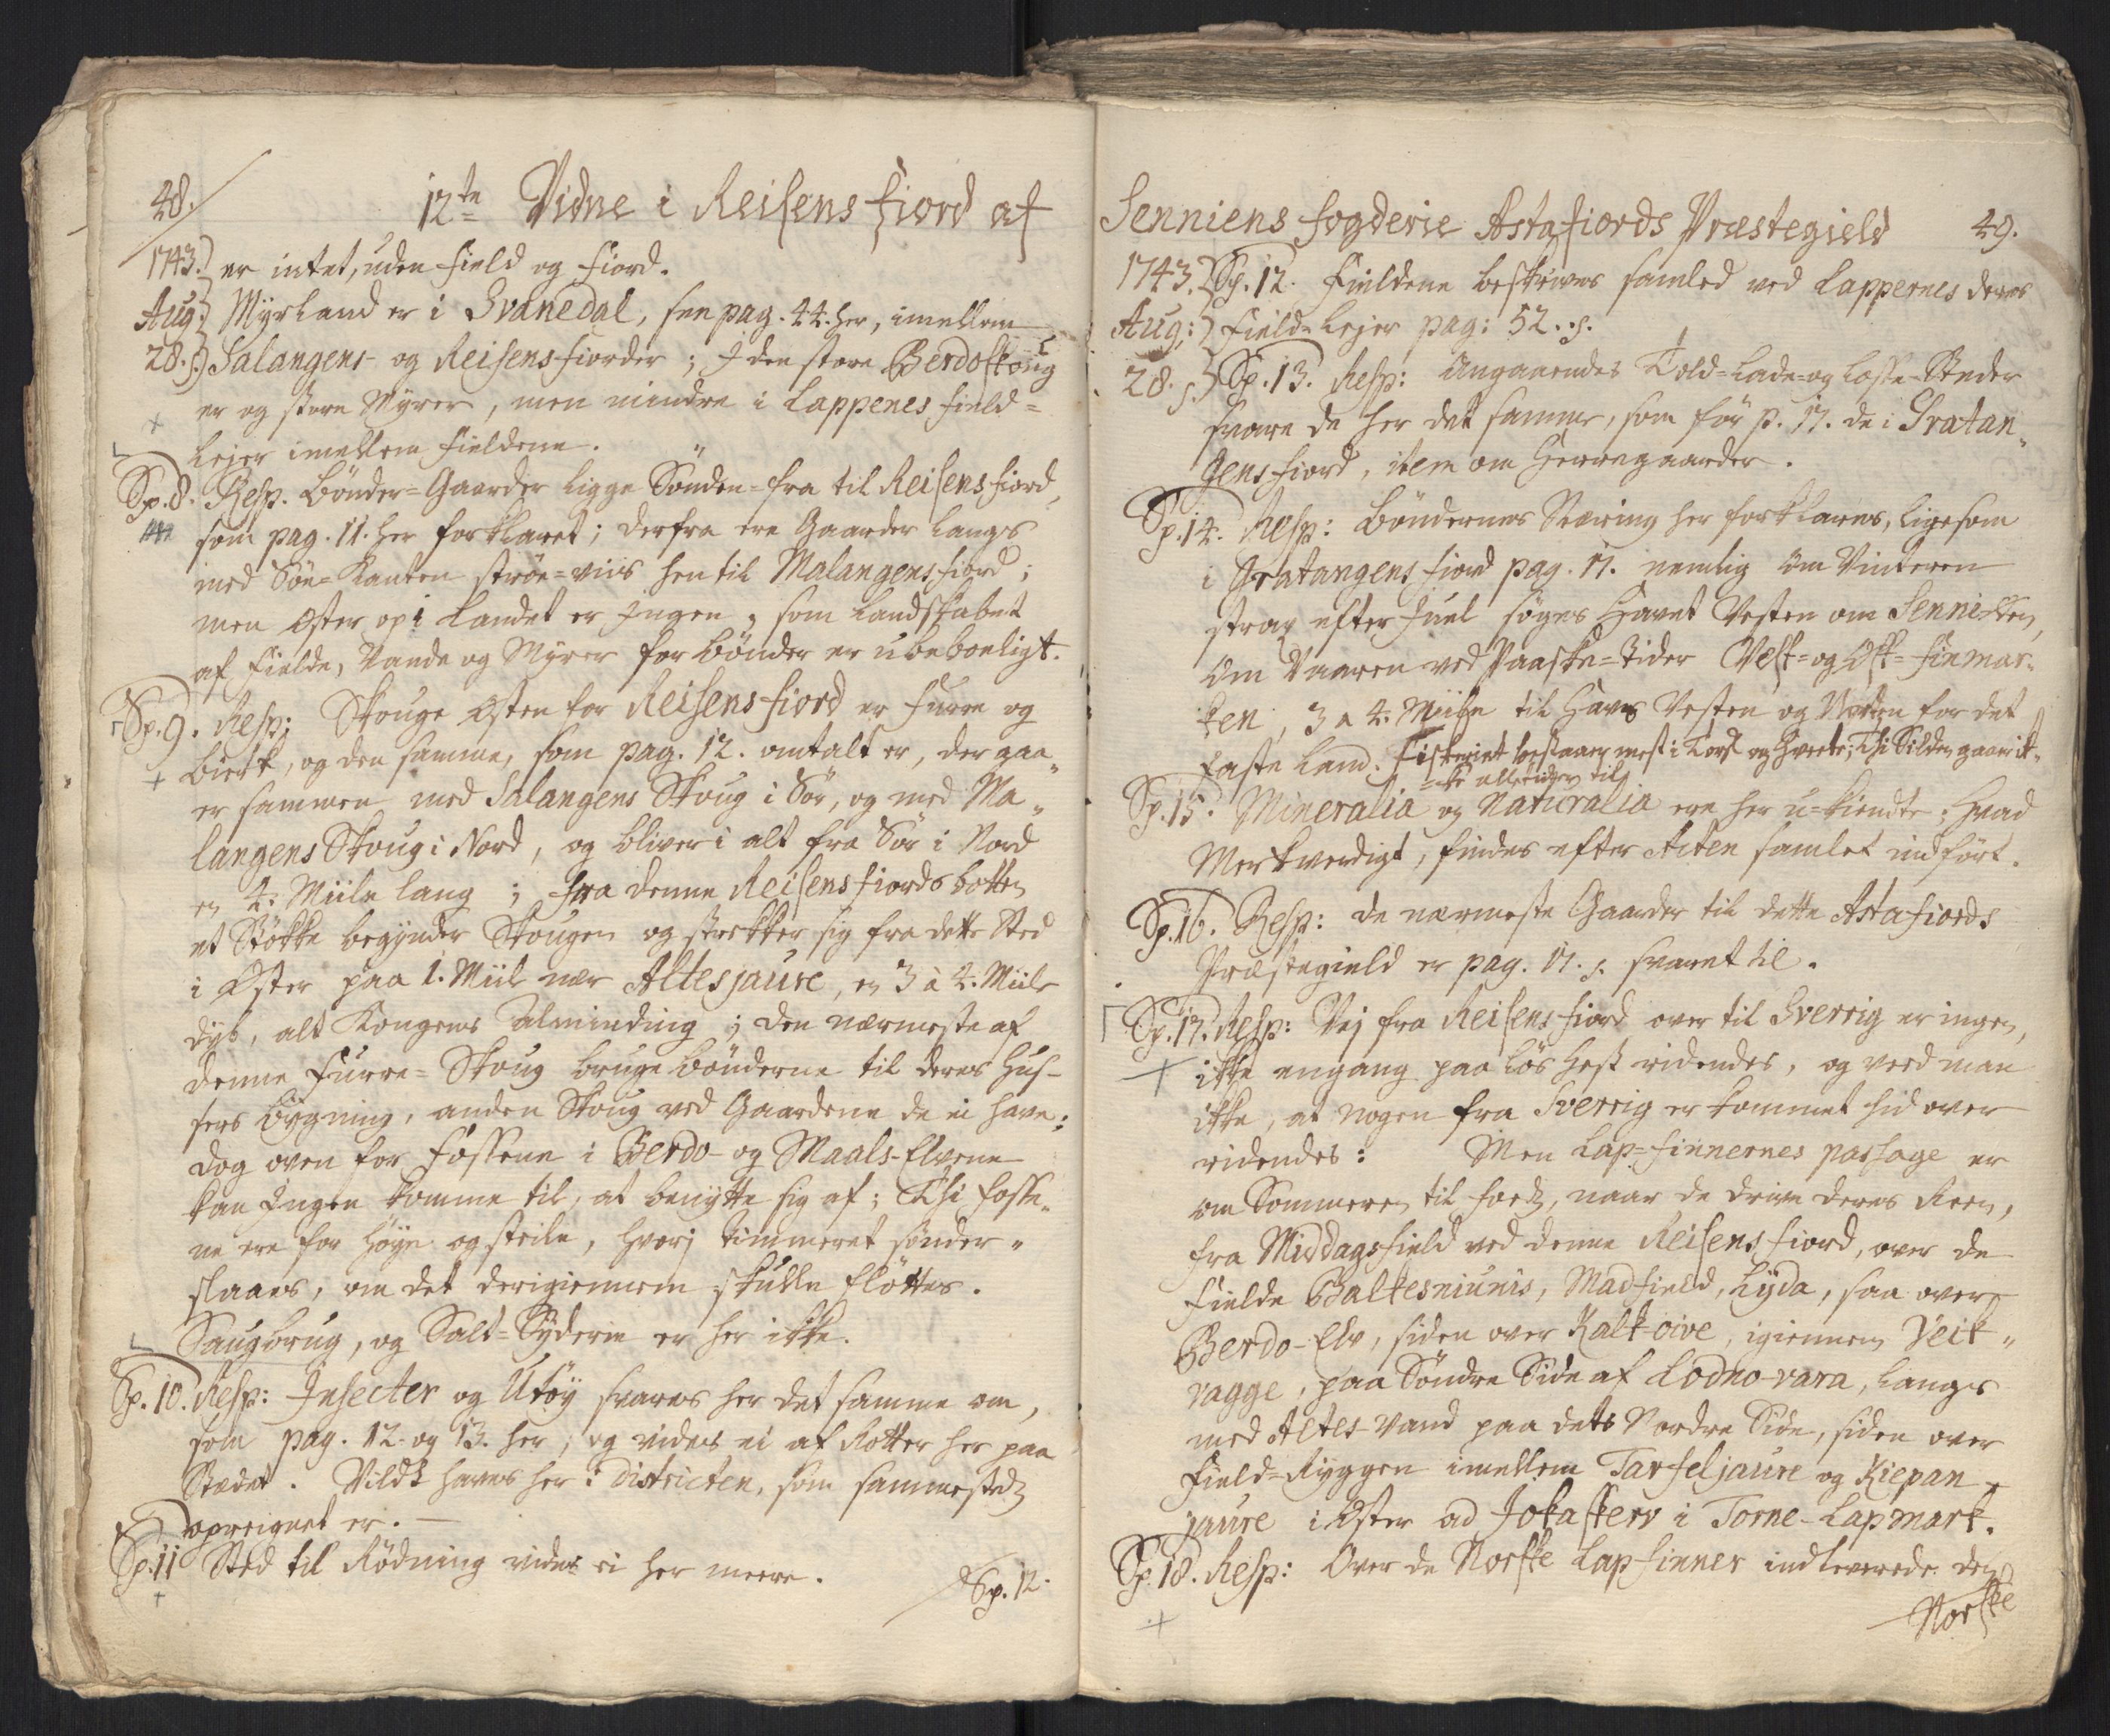 48.
12te Vidne i Reisens fiord af
1743. er intet, uden Field og Fiord.
Aug: Myrland er i Svanedal, see pag. 44. her, imellem
28. s. Salangens- og Reisensfiorder; J den store Berdoskoug
er og store Myrer, men mindre i Lappenes Field=
Lejer imellem Fieldene.
Sp. 8. Resp. Bönder=Gaarder ligge Sönden=fra til Reisensfiord,
som pag. 11. her forklaret; derfra ere Gaarder langs
med Söe=Kanten ströe=viis hen til Malangensfiord;
men Öster op i Landet er Jngen, som Landskabet
af Fielde, Vande og Myrer for Bönder er ubeboeligt.
Sp. 9. Resp: Skouge Östen for Reisensfiord er Furre og
Birk, og den samme, som pag. 12. omtalt er, der gaa„
er sammen med Salangens Skoug i Sör, og med Ma„
langens Skoug i Nord, og bliver i alt fra Sör i Nord
en 4. Miile lang; fra denne Reisensfiords botten
et Stökke begynder Skougen og strekker sig fra dette Sted
i Öster paa 1. Miil nær Altesjaure, en 3 à 4. Miile
dyb, alt Kongens Alminding; den nærmeste af
denne Furre=Skoug bruge Bönderne til deres Huus-
sers Bygning, anden Skoug ved Gaardene de ei have;
dog oven for Fossene i Berdo- og Maals-Elvene
kan Jngen komme til, at benytte sig af; Thi Fosse„
ne ere for höye og steile, hvorj Timmeret sönder„
slaaes, om det derigiennem skulle flöttes.
Saugbrug, og Salt=Syderie er her ikke.
Sp. 10. Resp: Jnsecter og Utöy svares her det samme om,
som pag. 12. og 13. her, og vides ei af Rotter her paa
Stædet. Vildt haves her i Districten, som sammesteds
opreignet er. —
Sp. 11 Sted til Rödning vides ei her meere.
Sp. 12.
Senniens fogderie Astafiords Præstegield 49.
1743. Sp. 12. Fieldene beskrives samled ved Lappernes deres
Aug: Field=Lejer pag: 52. s.
28. s. Sp. 13. Resp: Angaaendes Told=Lade=og Losse=Steder
svare de her det samme, som för p. 17. de i Gratan„
gensfiord, item om Herregaarder.
Sp. 14. Resp: Böndernes Næring her forklares, ligesom
i Gratangens fiord pag. 17. nemlig Om Vinteren
strax efter Juul söges Havet Vesten om Sennien,
Om Vaaren ved Paaske=Tider Vest=og Öst=Finmar„
ken, 3 a 4. Miile til Havs Vesten og Norden for det
faste Land. Fiskeriet bestaaer mest i Torsk og Hvitte; Thi Silden gaaer ik„
=ke alletider til
Sp. 15. Mineralia og Naturalia ere her u=kiendte; Hvad
Merkverdigt, findes efter Acten samlet indfört.
Sp. 16. Resp: de nærmeste Gaarder til dette Astafiords
Præstegield er pag. 17. s. svaret til.
Sp. 17. Resp: Vej fra Reisensfiord over til Sverrig er ingen,
ikke engang paa lös Hest ridendes, og veed man
ikke, at nogen fra Sverrig er kommet hid over
ridendes: Men Lap=Finnernes passage er
om Sommeren til Foeds, naar de drive deres Reen,
fra Middagsfield ved denne Reisensfiord, over de
Fielde Baltesniunis, Madfield, Lyda, saa over
Berdo-Elv, siden over Kalk-oive, igiennem Veik„
vagge, paa Söndre Side af Lodno-vara, langs
med Altes-Vand paa dets Nordre Side, siden over
Field=Ryggen imellem Tarfeljaure og Kiepan„
jaure i Öster ad Jokaskerv i Torne-Lapmark.
Sp. 18. Resp: Over de Norske Lapfinner indleverede den
Norske